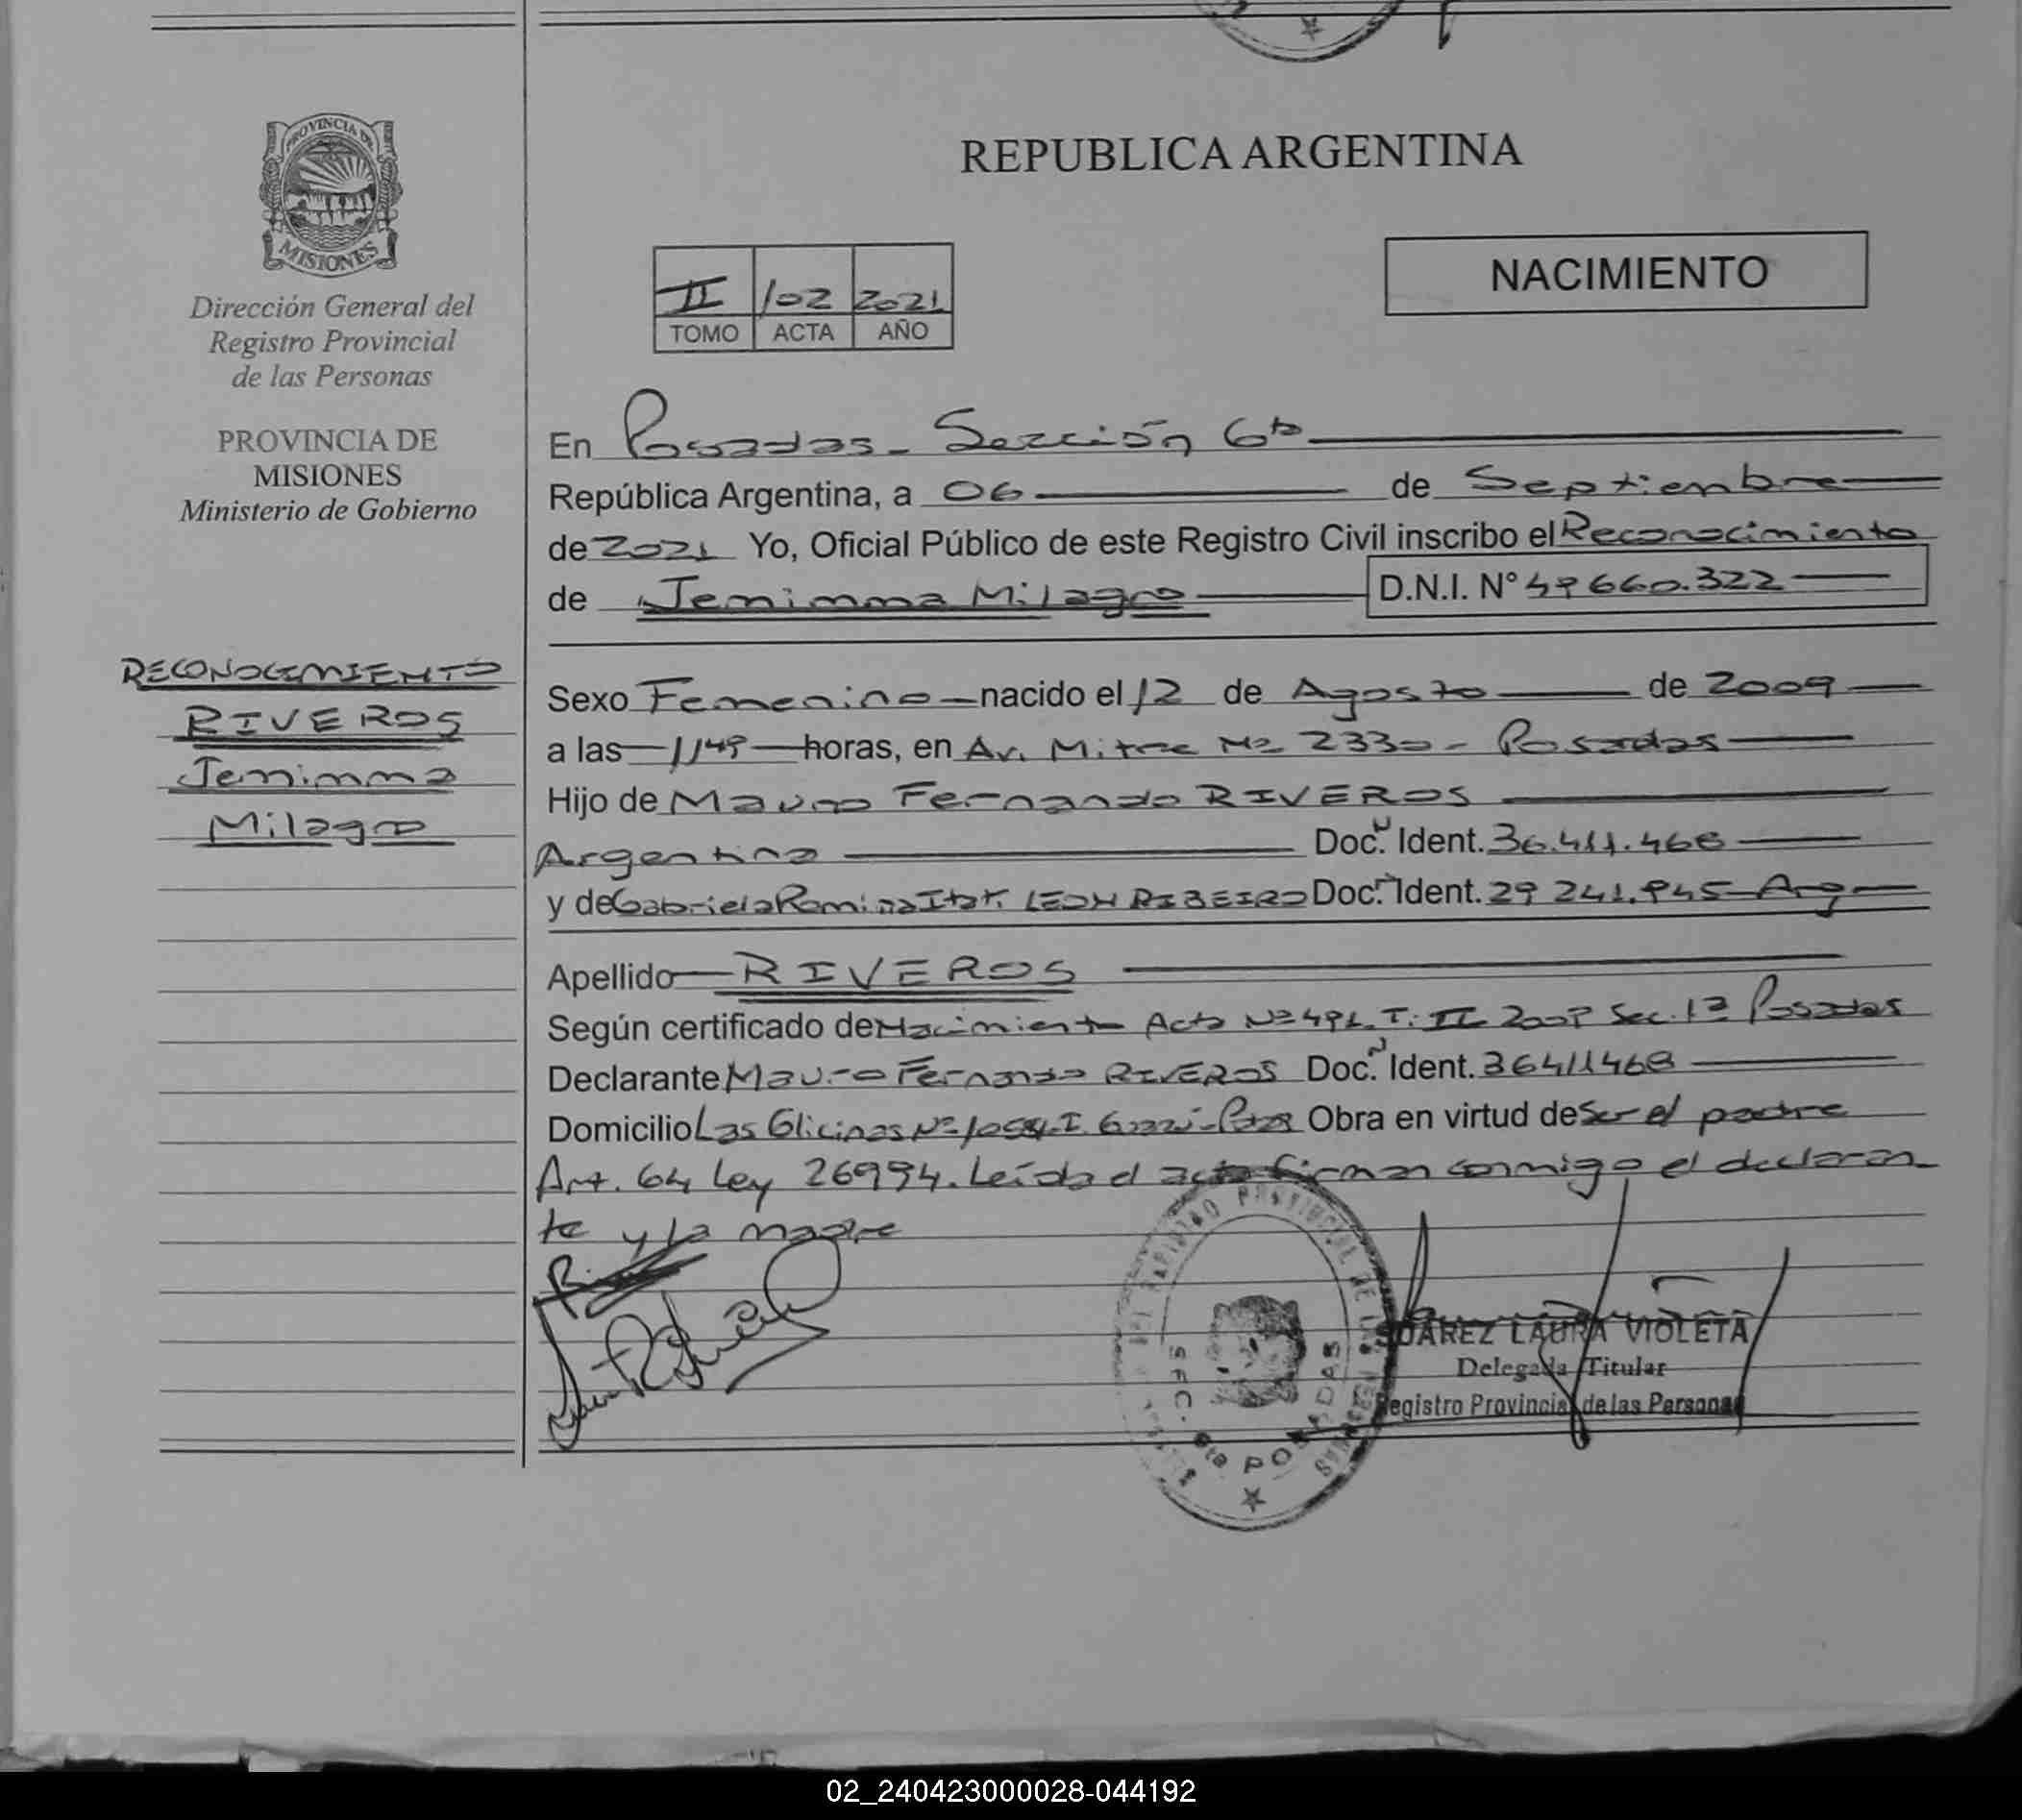 PROVINCIA DE
MISIONES
Dirección General del
Registro Provincial
de las Personas
PROVINCIA DE
MISIONES
Ministerio de Gobierno
RECONOCIMIENTO
RIVEROS
Jemimma
Milagro
REPUBLICA ARGENTINA
NACIMIENTO
II 102 2021
TOMO ACTA AÑO
En Posadas - Sección 6ta
República Argentina, a 06 de Septiembre
de 2021 Yo, Oficial Público de este Registro Civil inscribo el Reconocimiento
de Jemimma Milagro D.N.I. N°
Sexo Femenino nacido el 12 de Agosto de 2009
a las horas, en Av. Mitre Nº 2330 - Posadas
Hijo de Mauro Fernando RIVEROS
Argentina Doc. Ident. 36.411.468
y de Gabriela Romina Itatí LEON RIBEIRO Doc. Ident. Arg
Apellido RIVEROS
Según certificado de Nacimiento Acta Nº T: II Sec. 1ª Posadas
Declarante Mauro Fernando RIVEROS Doc. Ident. 36411468
Domicilio Las Glicinas Nº Obra en virtud de Ser el padre
Art. 64 Ley 26994. Leída el acta firman conmigo el declaran-
te y la madre
SUAREZ LAURA VIOLETA
Delegada Titular
Registro Provincial de las Personas
SEC. 6ta POSADAS
02_240423000028-044192